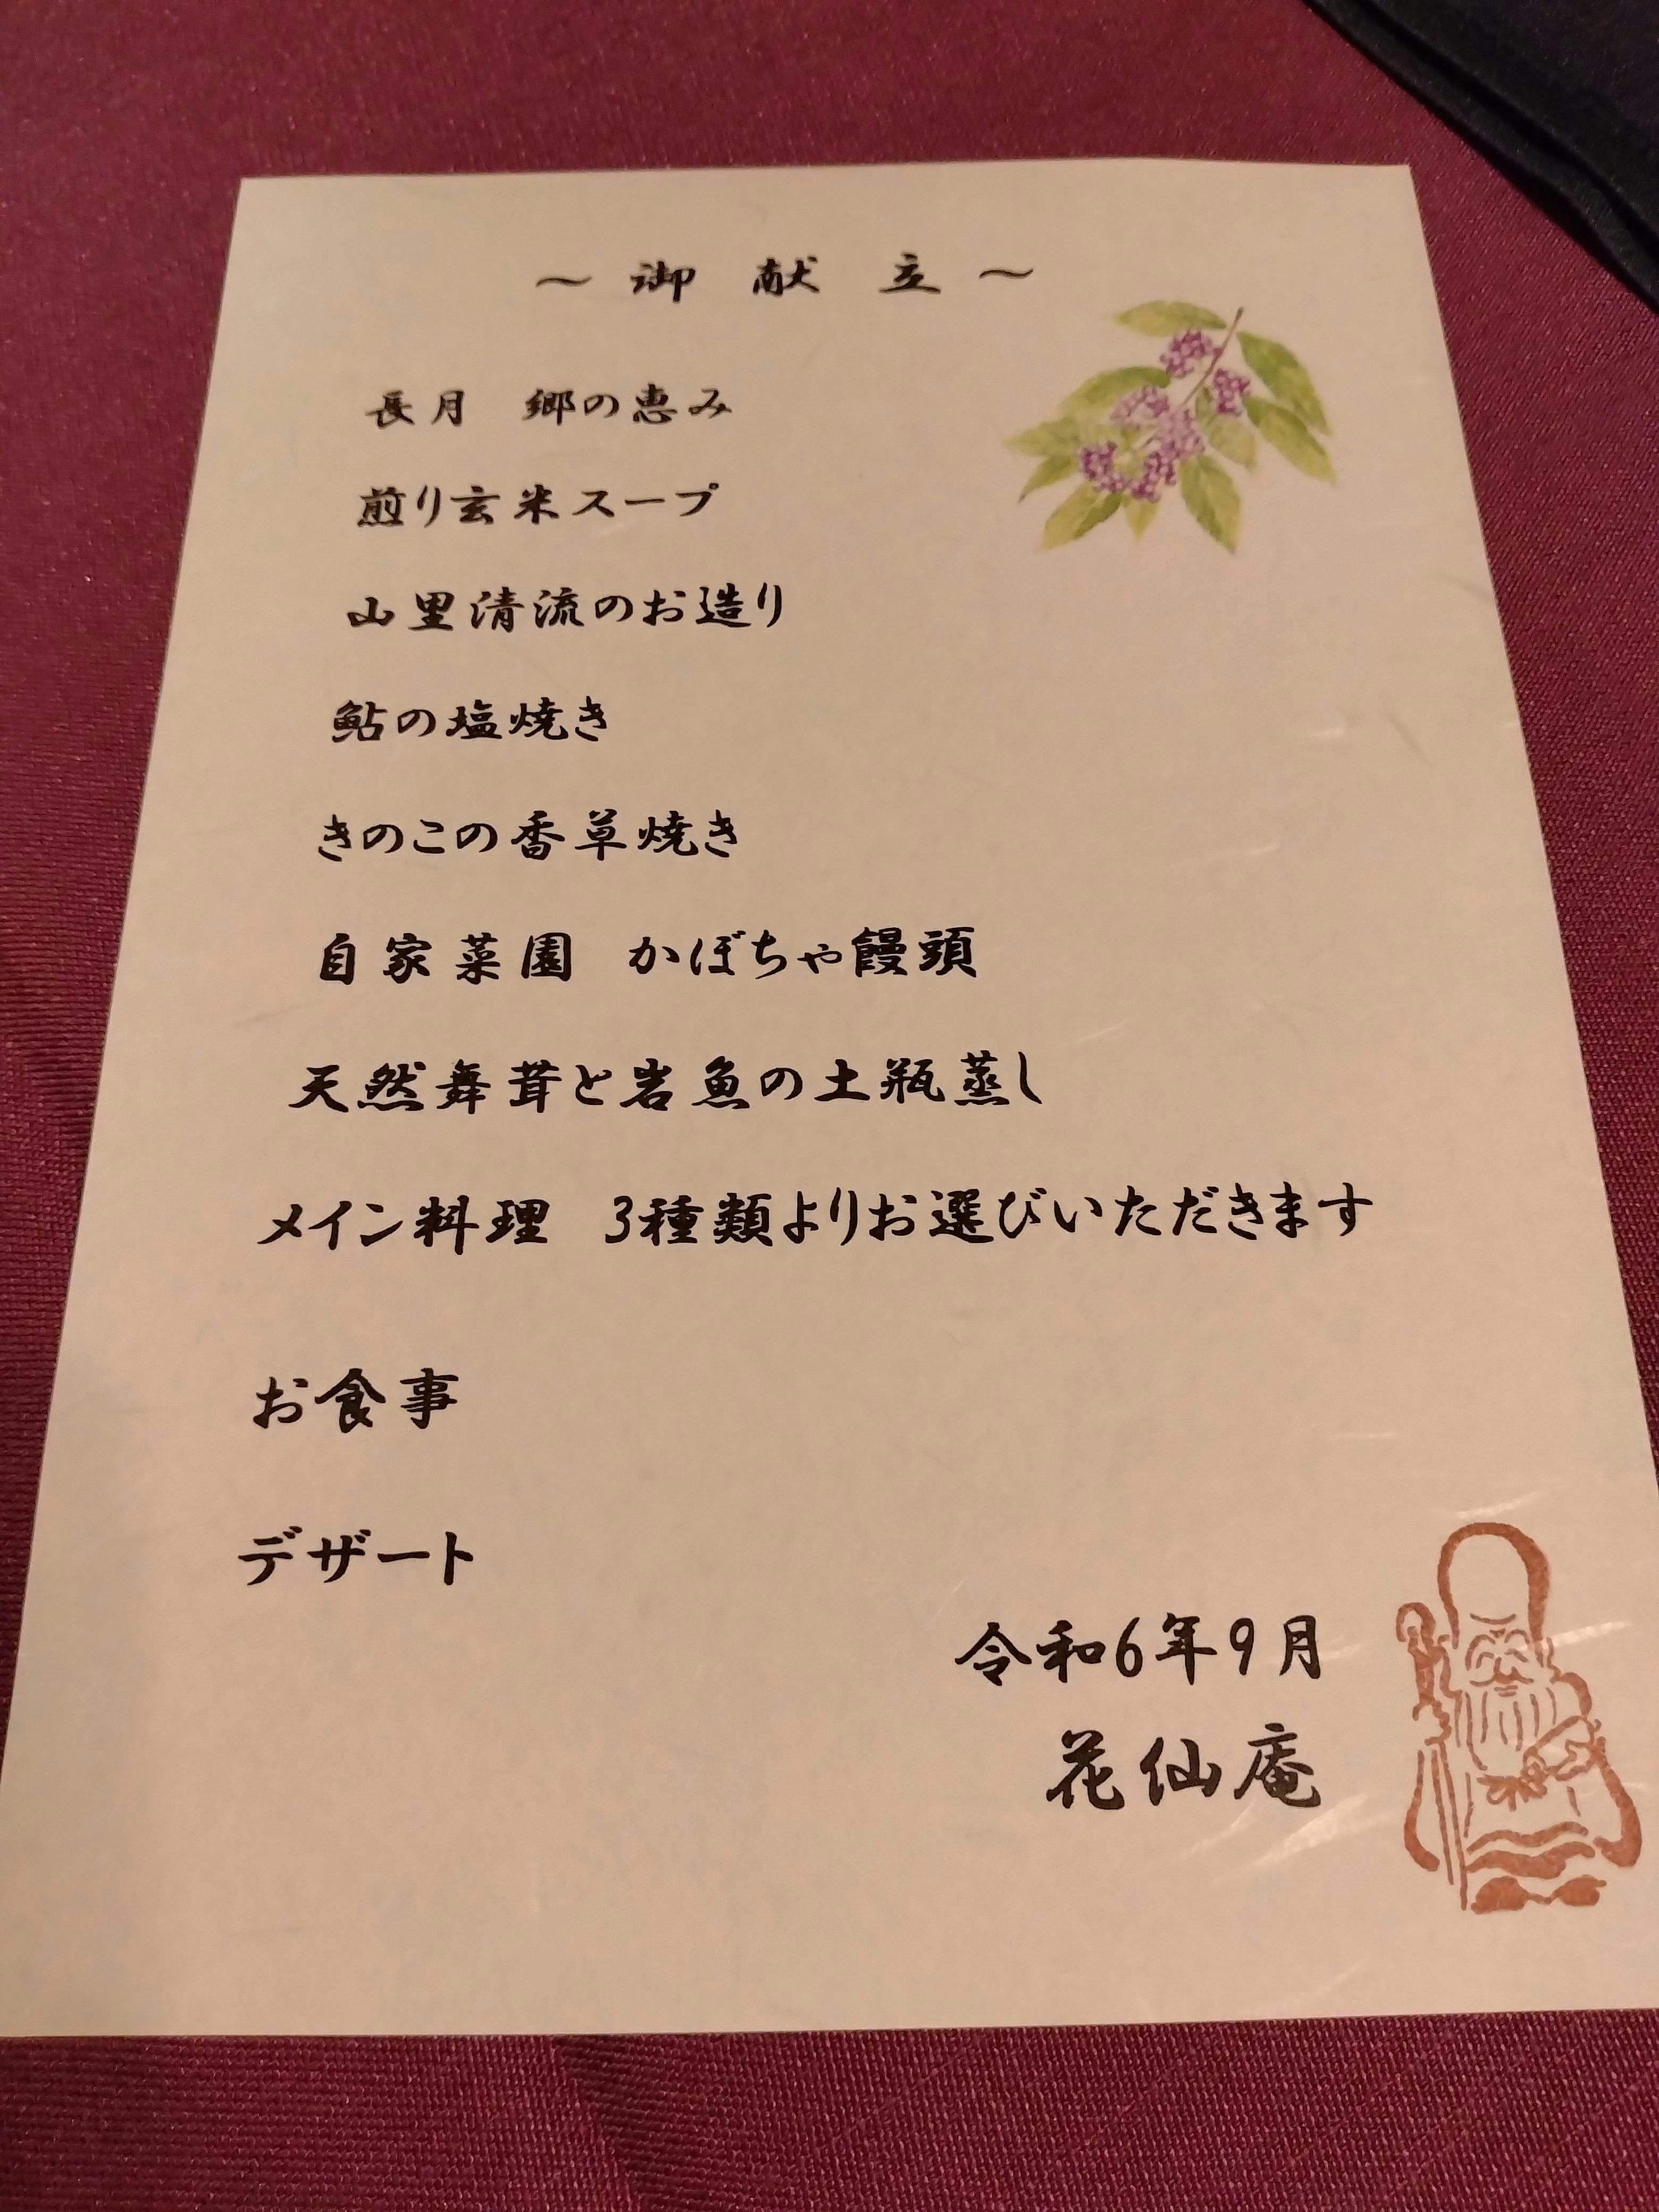 ～ 御 献 立 ～
長月 郷の恵み
煎り玄米スープ
山里清流のお造り
鮎の塩焼き
きのこの香草焼き
自家菜園 かぼちゃ饅頭
天然舞茸と岩魚の土瓶蒸し
メイン料理 3種類よりお選びいただきます
お食事
デザート
令和6年9月
花仙庵